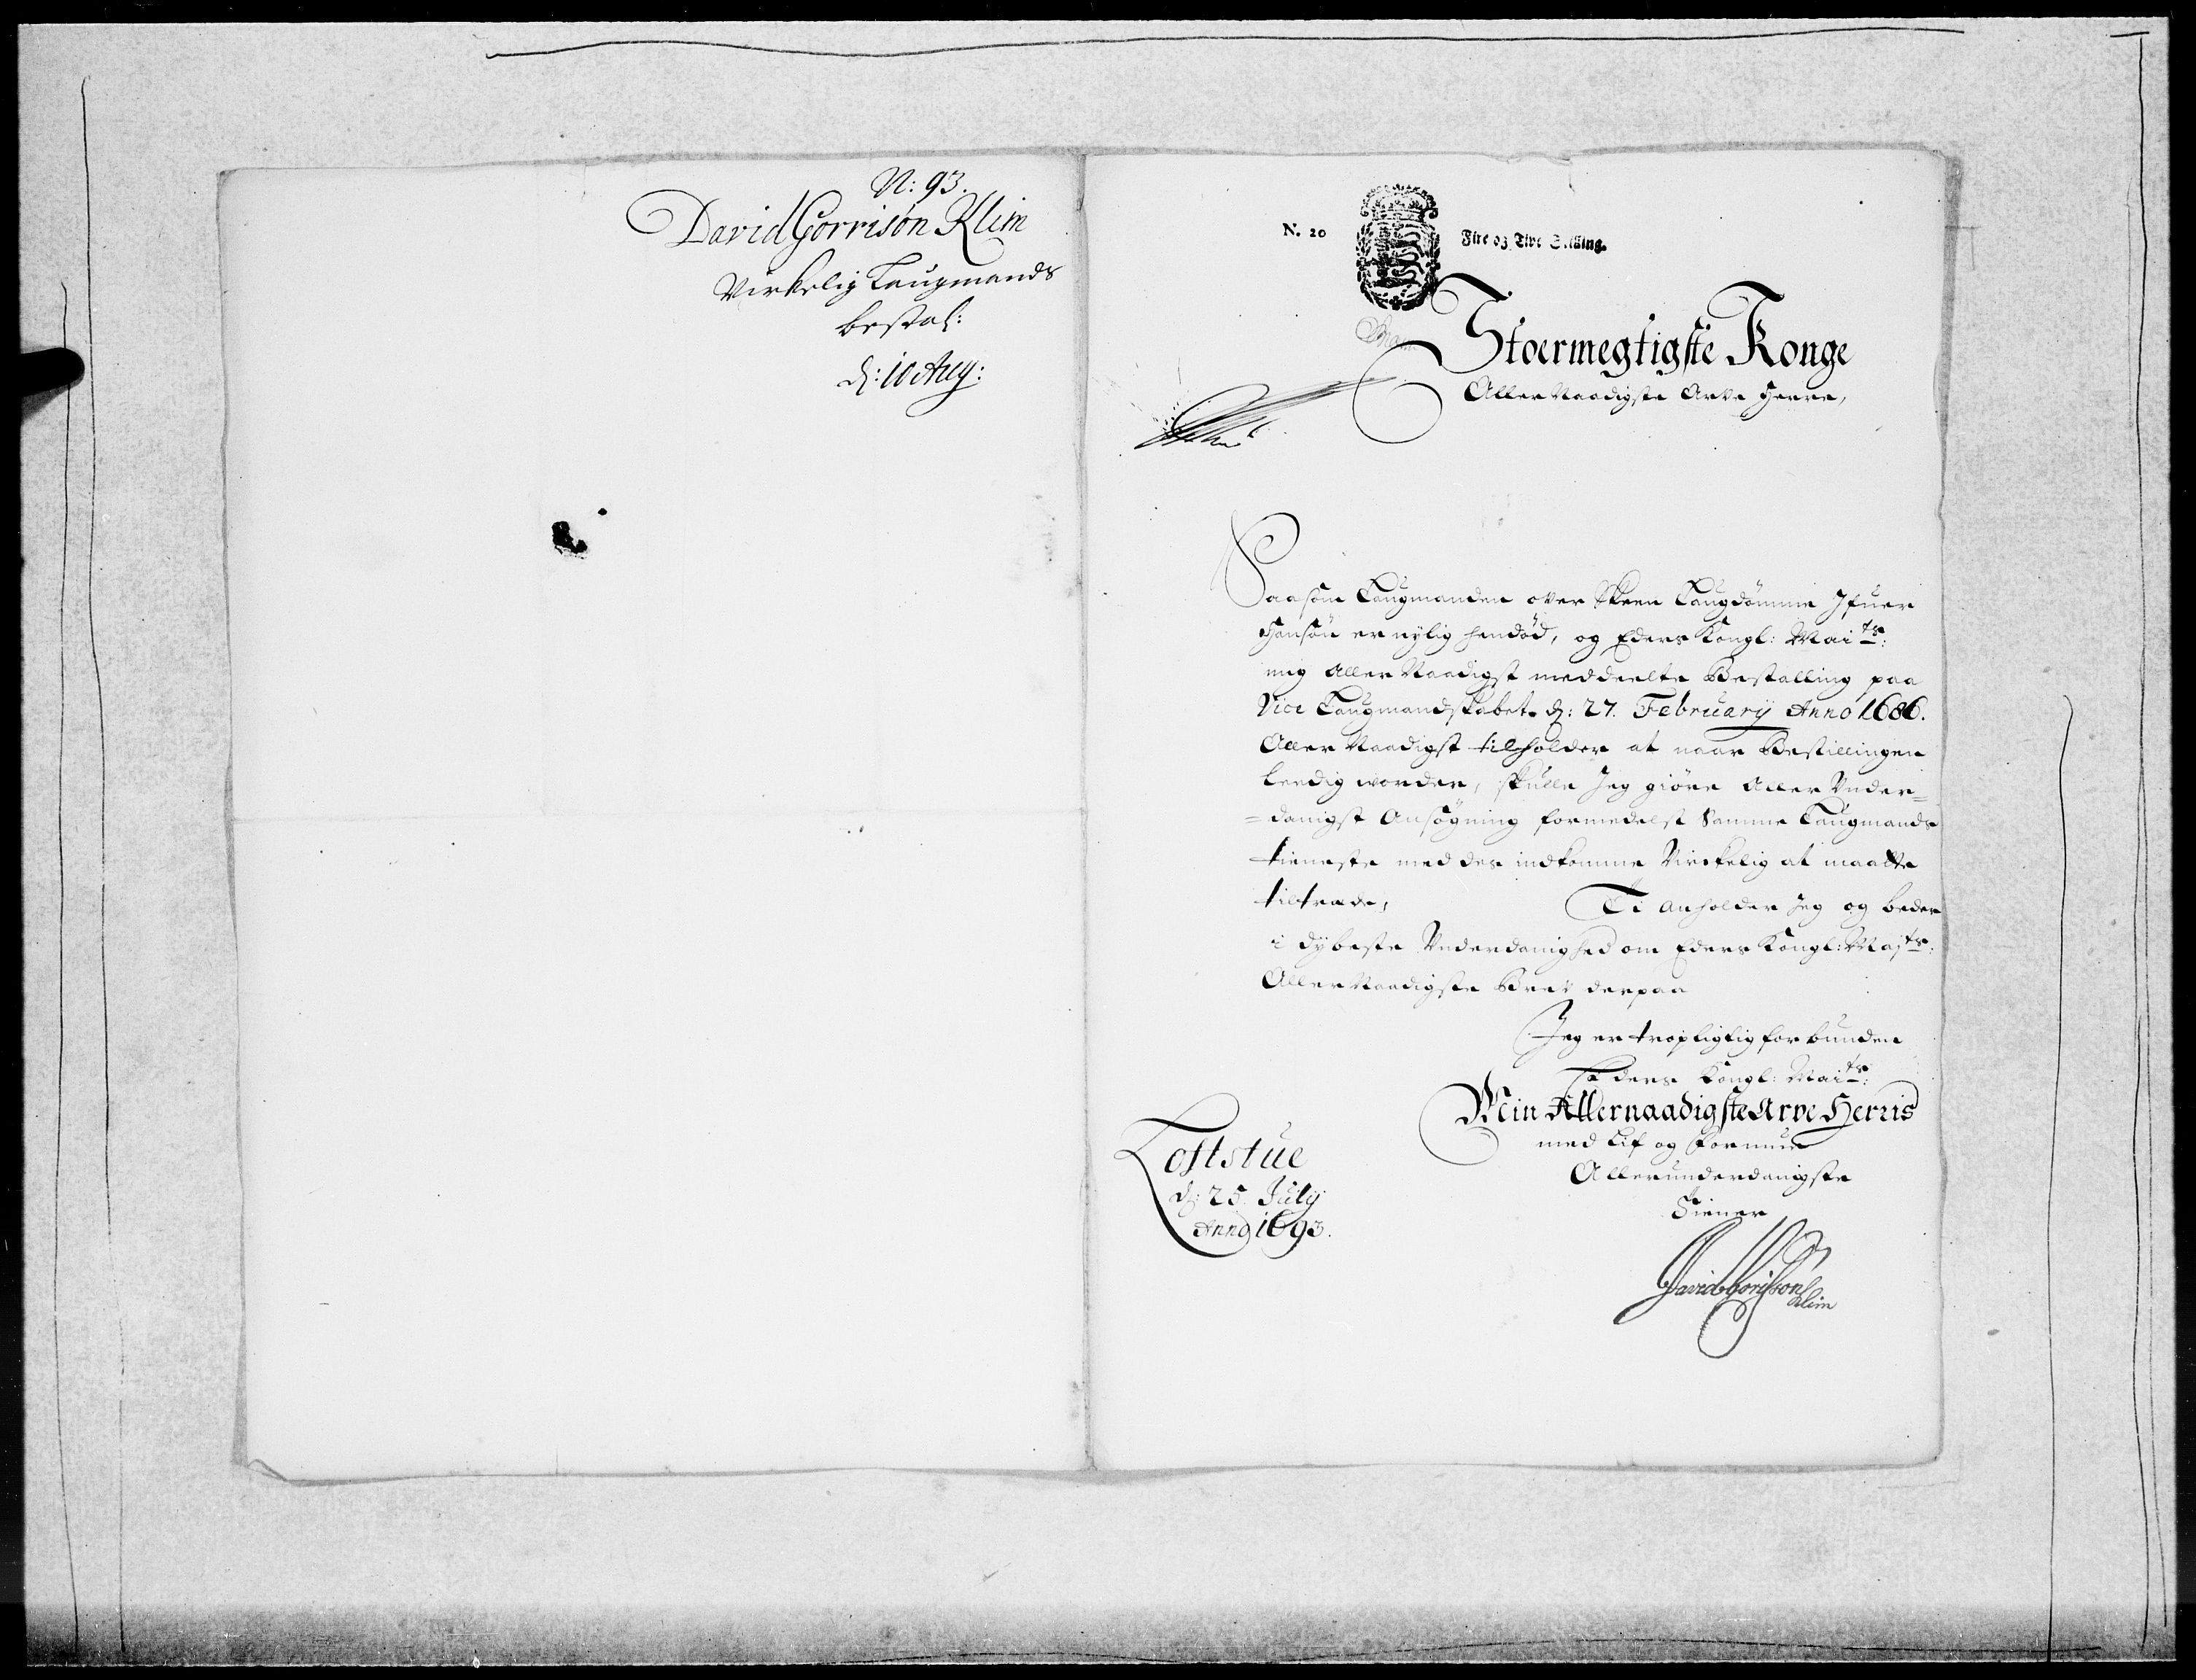 N: 93.
David Gorrisøn Klim
Virkelig Laugmands
bestal:
d: 10 Aug:
N. 20
Fire og Tive Skilling.
Stoermegtigste Konge
Aller Naadigste Arve Herre,
Saasom Laugmanden over Skeen Laugdømme Ifuer
Hansøn er nylig hendød, og Eders Kongl: Mai ts:
mig Aller Naadigst meddeelte Bestalling paa
Vice Laugmandskabet d: 27. February Anno 1686.
Aller Naadigst tilholder at naar Bestillingen
leedig worder, skulle Jeg giøre Aller Vnder=
=danigst Ansøgning formedelst Samme Laugmands
tieneste med des indkomme Virckelig at maatte
tiltræde,
Ti anholder Jeg og beder
i dybeste Vnderdanighed om Eders Kongl: Majts:
Aller Naadigste Brev derpaa
Jeg er tropligtig forbunden
Eders Kongl: Mai ts:
Min Allernaadigste Arve Herris
med Lif og Formue
Allerunderdanigste
Tiener
David Gorisson
Klim
Loftstue
d: 25. July
Anno 1693.